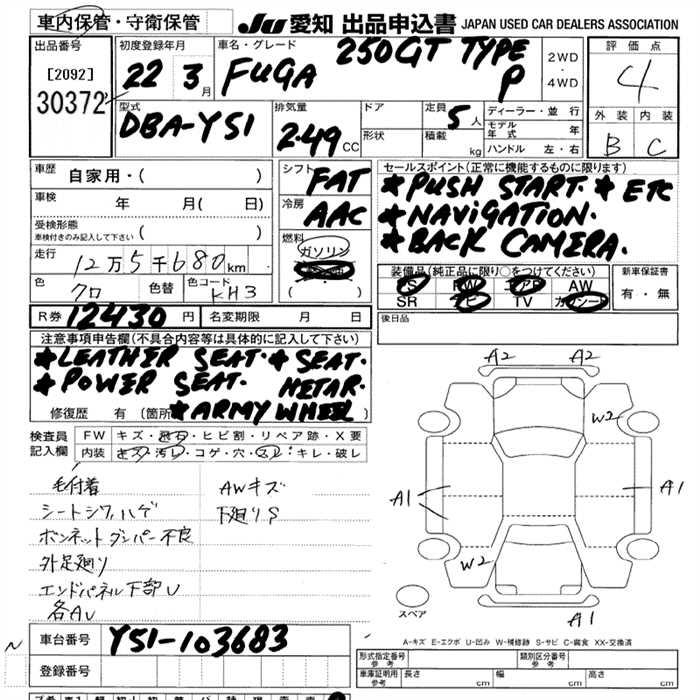 車内保管・守衛保管
JU 愛知 出品申込書 JAPAN USED CAR DEALERS ASSOCIATION
出品番号
[2092]
30372
初度登録年月
22 3月
車名・グレード
FUGA 250GT TYPE P
2WD
・
4WD
評価点
4
外装 内装
B C
型式
DBA-Y51
排気量
2.49 CC
ドア
形状
定員 5 人
積載 kg
ディーラー・並行
モデル年式 年
ハンドル 左・右
車歴
自家用・( )
車検 年 月( 日)
受検形態
車検付きのみ記入して下さい ( )
走行
12万5千680km
色 クロ
色替
色コード KH3
R券 12430 円
名変期限 月 日
シフト
FAT
冷房
AAC
燃料
ガソリン
( )
セールスポイント(正常に機能するものに限ります)
★PUSH START. ★ETC
★NAVIGATION.
★BACK CAMERA.
装備品(純正品に限り○をつけてください)
AW
SR TV
新車保証書
有・無
後日品
注意事項申告欄(不具合内容等は具体的に記入して下さい)
★LEATHER SEAT. ★SEAT.
★POWER SEAT. HETAR.
修復歴 有 (箇所 ★ARMY WHEEL
検査員
記入欄
FW キズ・飛石・ヒビ割・リペア跡・X要
内装 キズ・汚レ・コゲ・穴・スレ・キレ・破レ
毛付着
シートシワ,ハゲ
ボンネットダンパー不良
外足廻り
エンドパネル下部U
各AU
AWキズ
下廻りS
A2 A2
W2
A1 A1
W2
A1
スペア
A-キズ E-エクボ U-凹み W-補修跡 S-サビ C-腐食 XX-交換済
車台番号 Y51-103683
登録番号
形式指定番号
参考
類別区分番号
参考
車庫証明用
参考
長さ cm
幅 cm
高さ cm